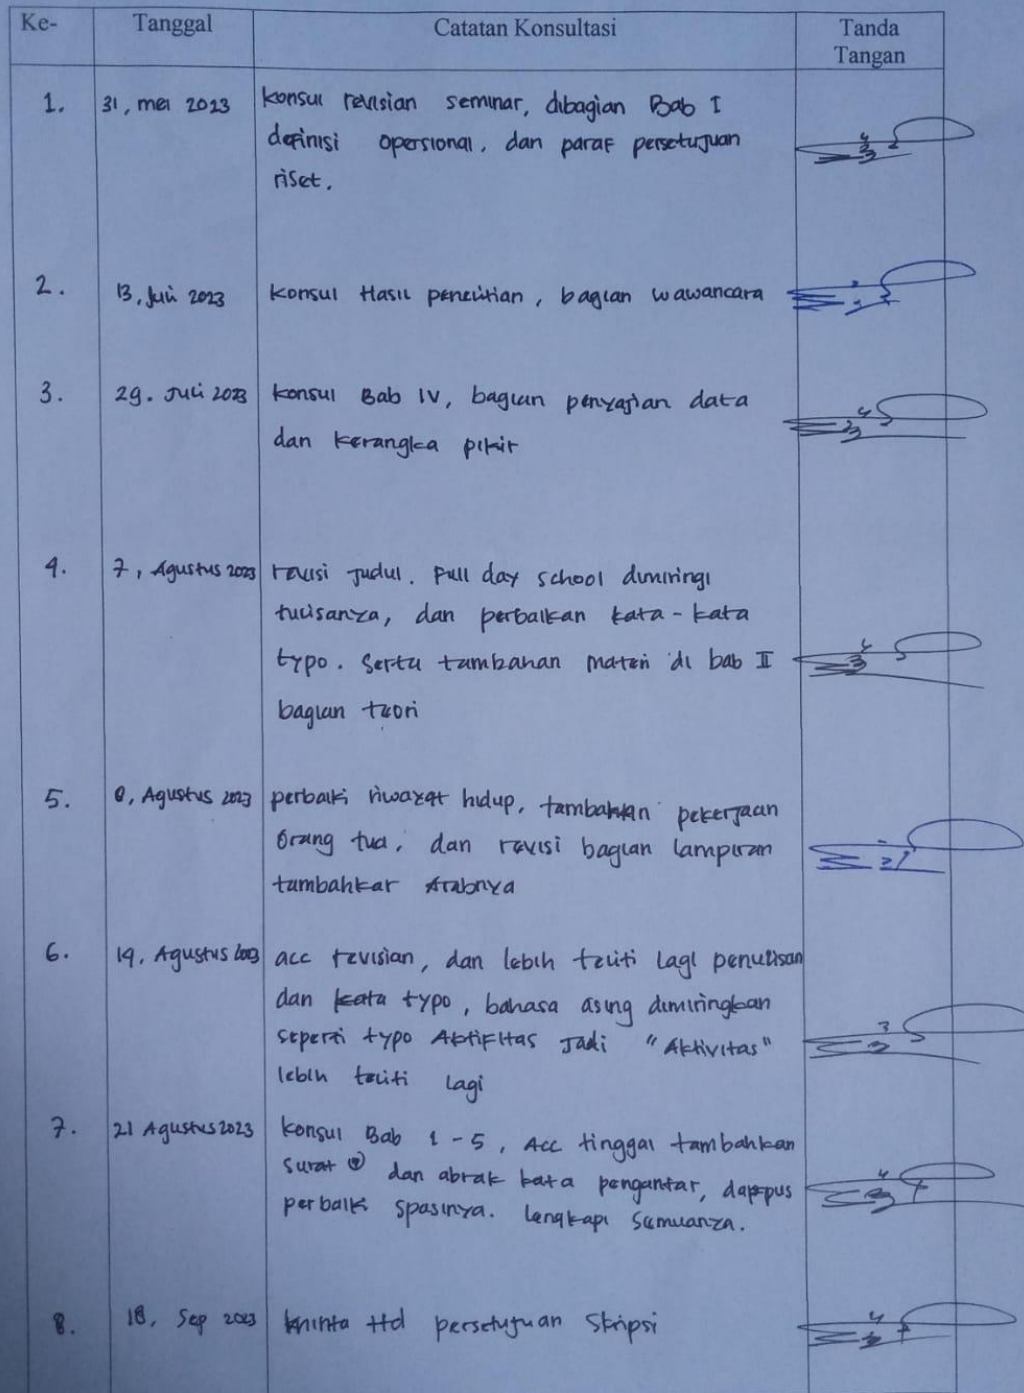 Ke- Tanggal Catatan Konsultasi Tanda
Tangan
1. 31, mei 2023 konsul revisian seminar, dibagian Bab I
definisi opersional, dan paraf persetujuan
riset.
2. 13, Juli 2023 konsul Hasil penelitian, bagian wawancara
3. 29. Juli 2023 konsul Bab IV, bagian penyajian data
dan kerangka pikir
4. 7, Agustus 2023 revisi judul. Full day school dimiringi
tulisanya, dan perbaikan kata-kata
typo. Serta tambahan materi di bab II
bagian teori
5. Agustus 2023 perbaiki riwayat hidup, tambahkan pekerjaan
orang tua, dan revisi bagian lampiran
tambahkar Arabnya
6. 19, Agustus 2023 acc revisian, dan lebih teliti lagi penulisan
dan kata typo, bahasa asing dimiringkan
seperti typo Aktifitas Jadi "Aktivitas"
lebih teliti lagi
7. 21 Agustus 2023 konsul Bab 1-5, Acc tinggal tambahkan
surat dan abrak kata pengantar, dappus
perbaik spasinya. lengkapi semuanya.
8. 18, Sep 2023 ttd persetujuan Skripsi